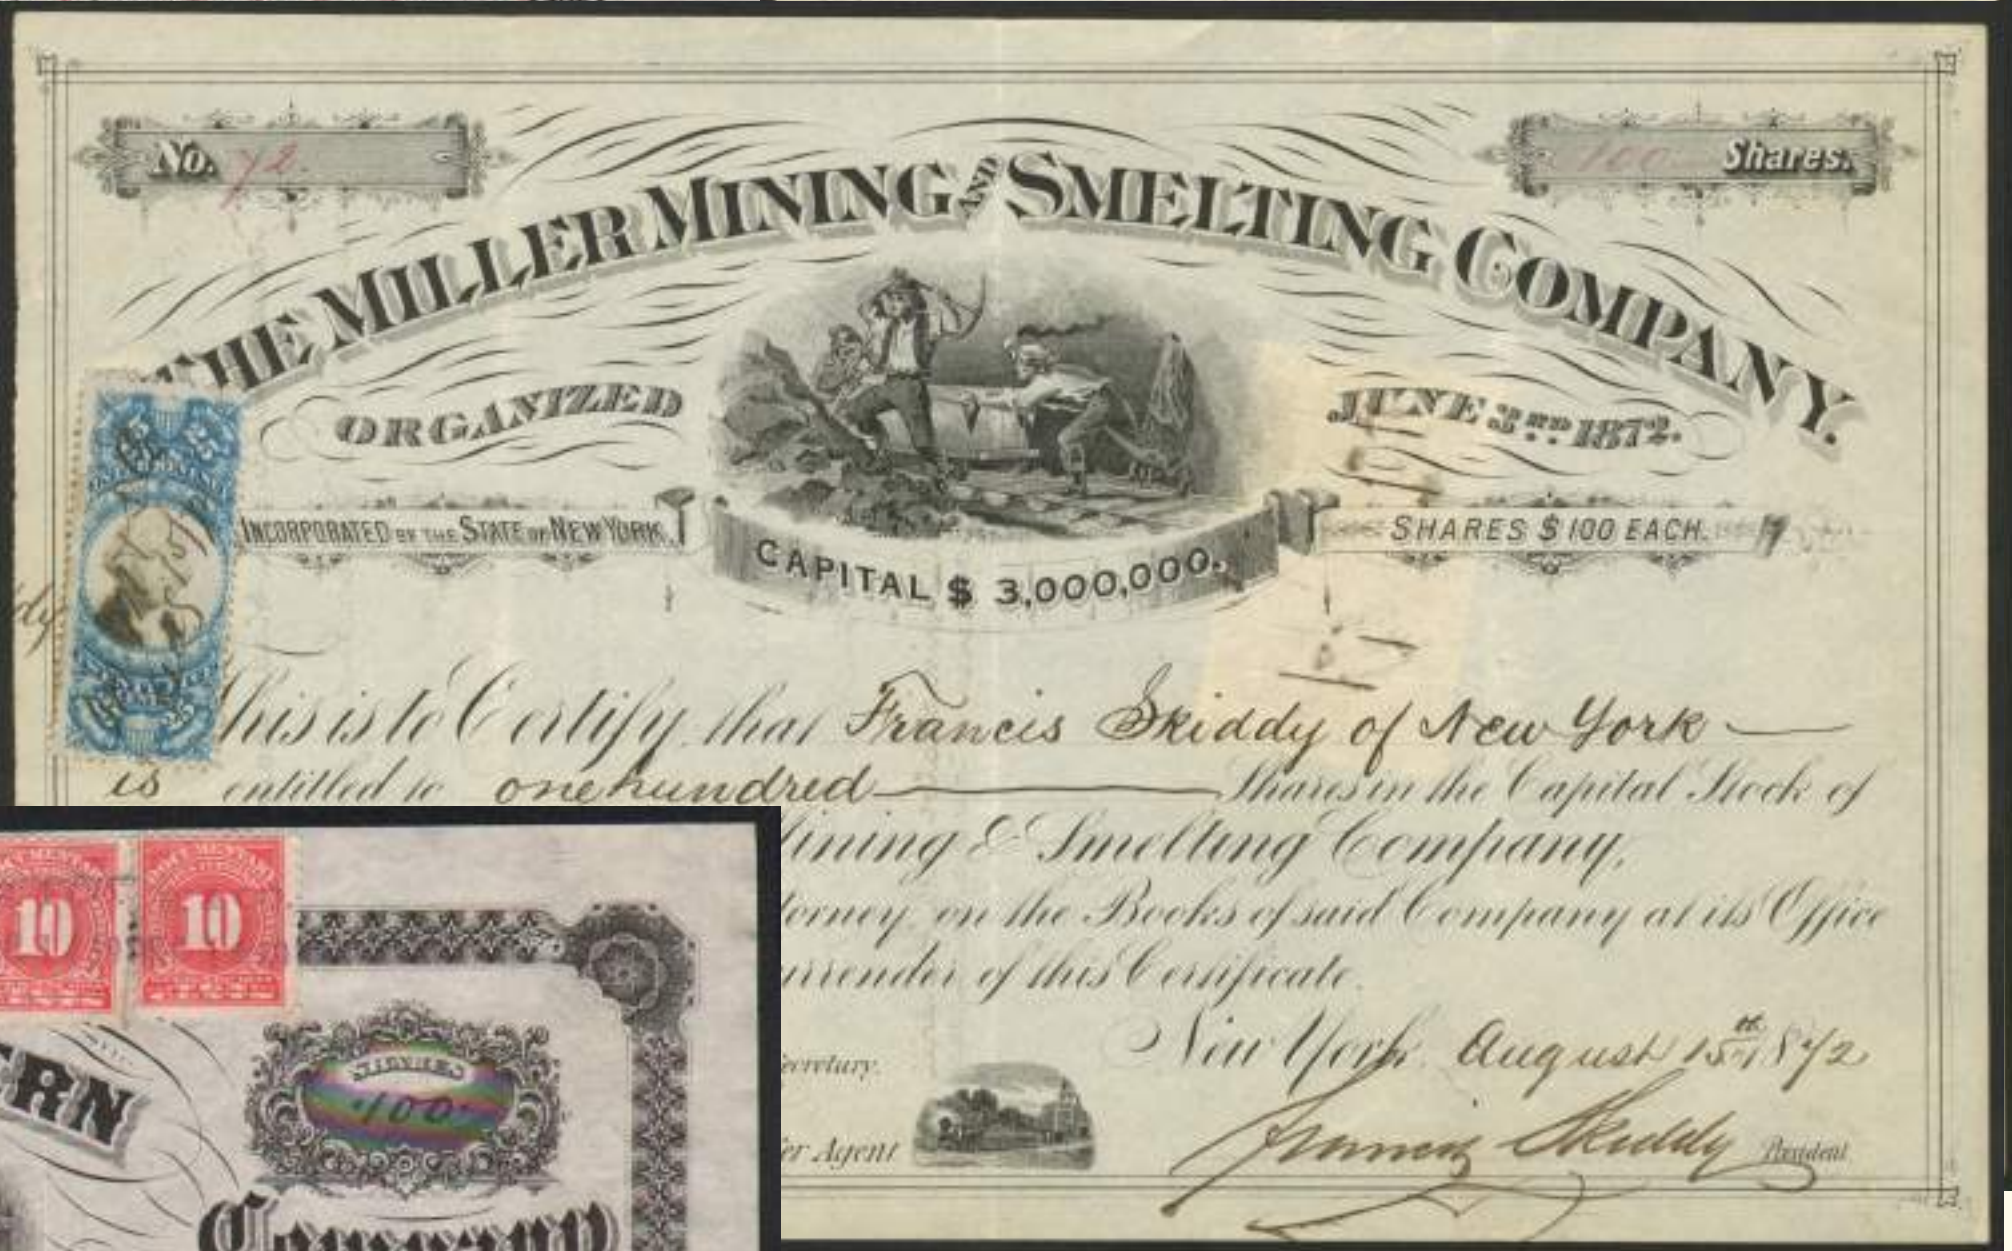 No. 72.
100 Shares.
THE MILLER MINING AND SMELTING COMPANY.
ORGANIZED JUNE 3RD 1872.
INCORPORATED BY THE STATE OF NEW YORK.
SHARES $100 EACH.
CAPITAL $ 3,000,000.
This is to Certify that Francis Skiddy of New York
is entitled to one hundred Shares in the Capital Stock of
ining & Smelting Company,
torney, on the Books of said Company at its Office
urrender of this Certificate.
New York August 15th 1872
ecretary.
er Agent
Francis Skiddy President
25
DOCUMENTARY
10
10
SHARES
100
ERN
Company